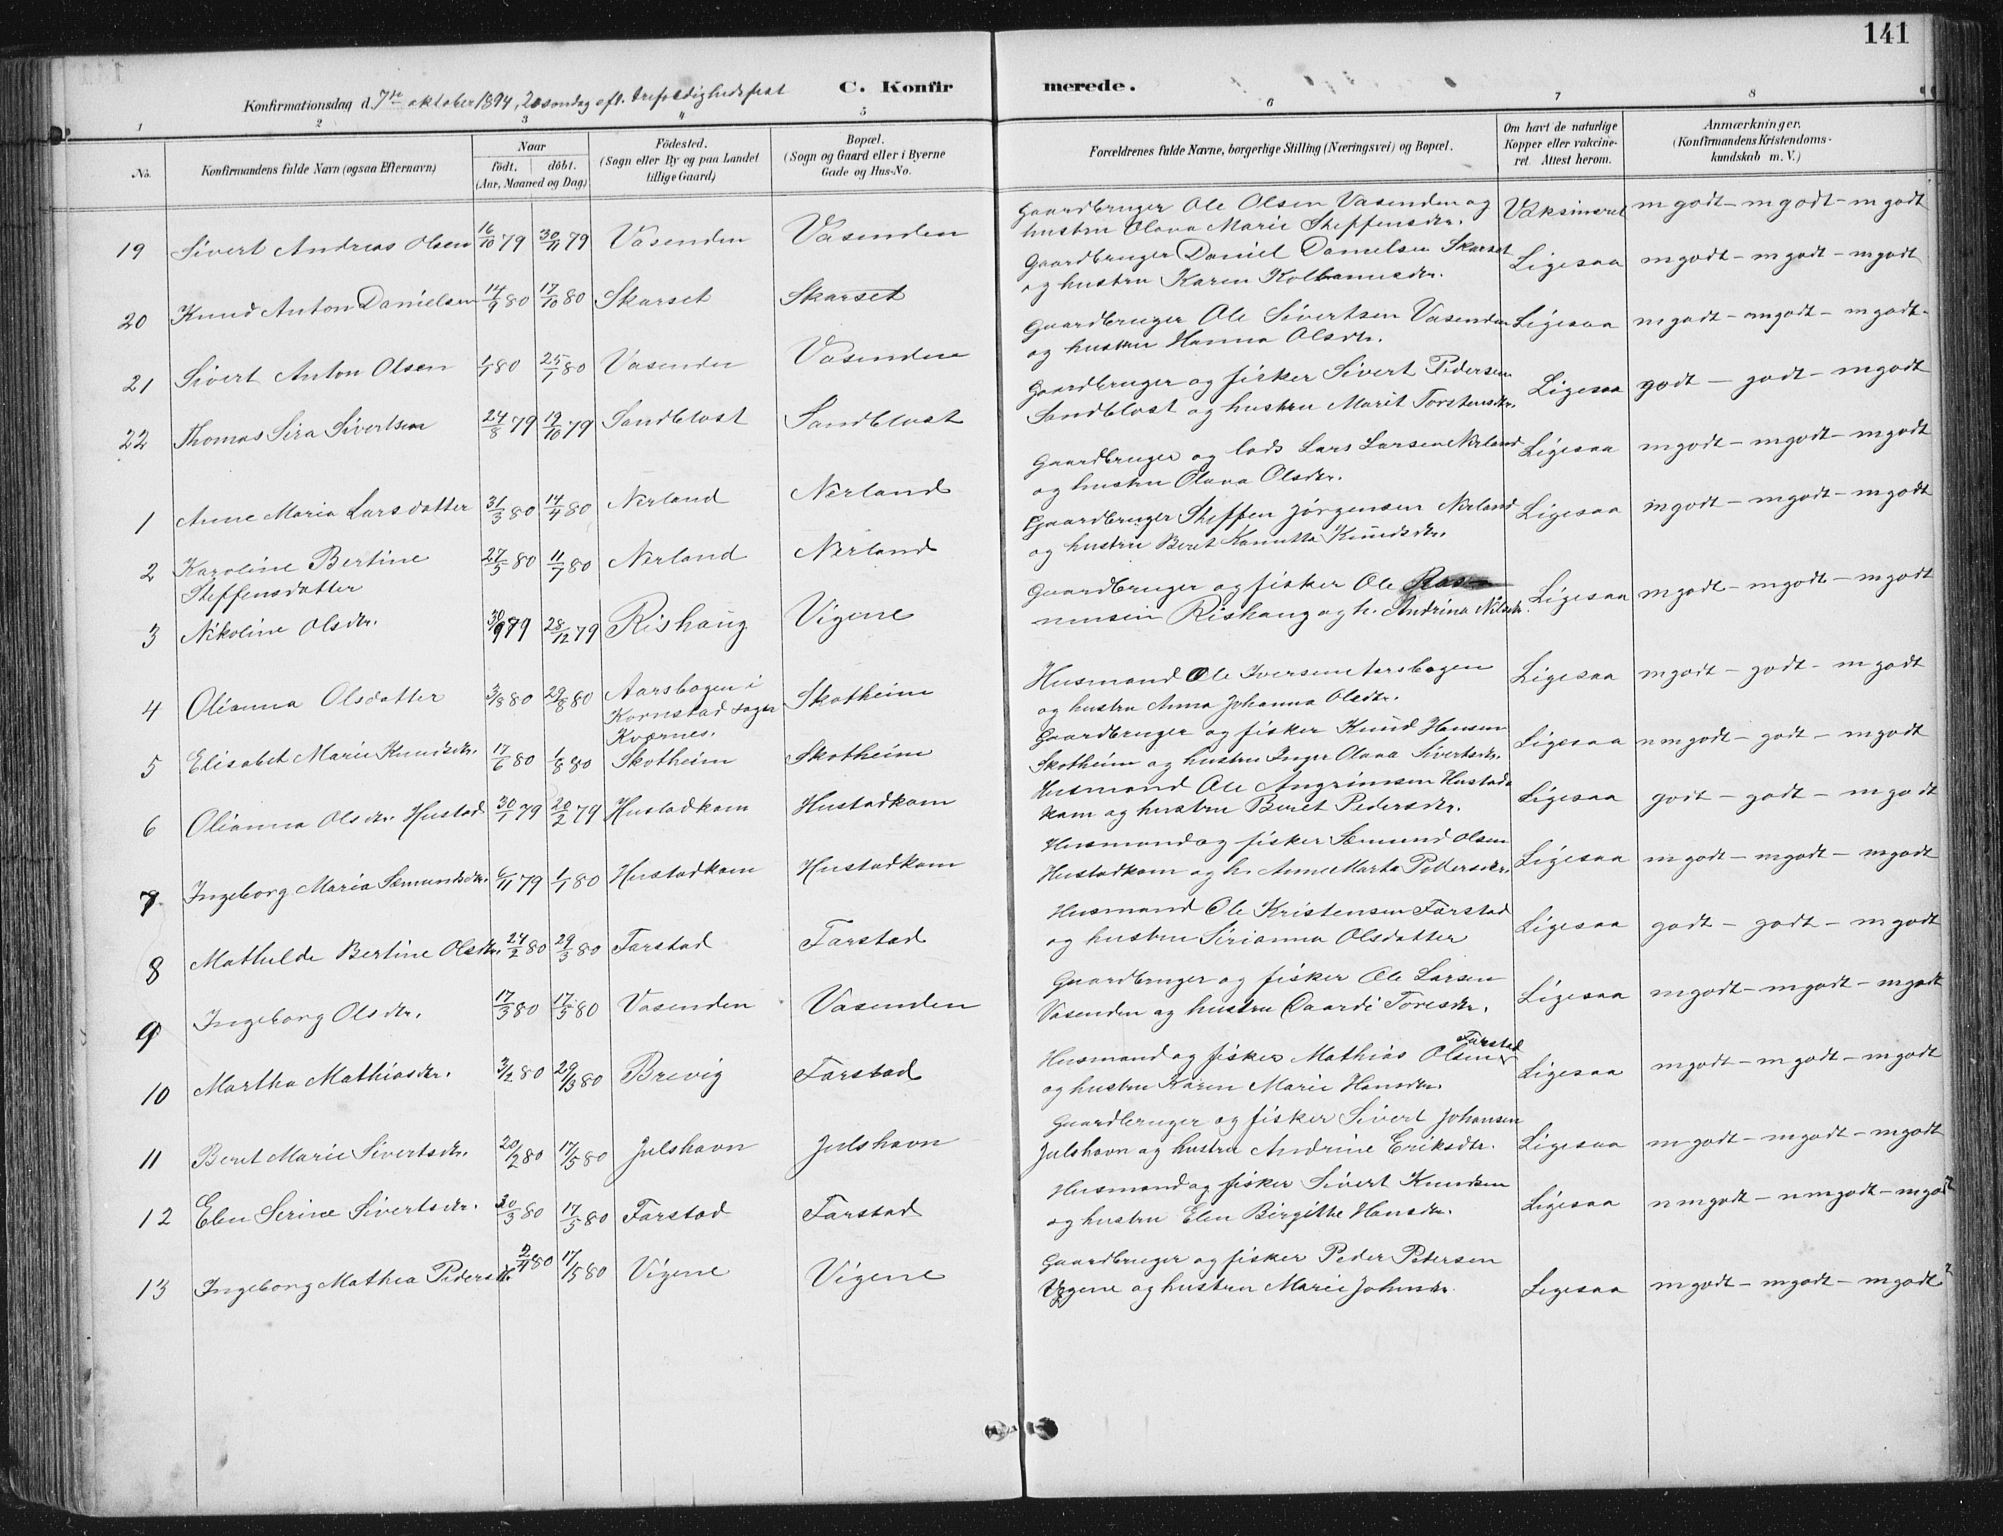 141
Konfirmationsdag d. 7de oktober 1894, 20 søndag eft. trefoldighedsfest C. Konfirmerede.
1 2 3 4 5 6 7 8
No. Konfirmandens fulde Navn (ogsaa Efternavn) Naar født. døbt. (Aar, Maaned og Dag) Fødested. (Sogn eller By og paa Landet tillige Gaard) Bopæl. (Sogn og Gaard eller i Byerne Gade og Hus-No. Forældrenes fulde Navne, borgerlige Stilling (Næringsvei) og Bopæl. Om havt de naturlige Kopper eller vakcineret. Attest herom. Anmærkninger. (Konfirmandens Kristendomskundskab m. V.)
19 Sivert Andreas Olsen 16/10 79 30/11 79 Vasenden Vasenden Gaardbruger Ole Olsen Vasenden og
hustru Olava Marie Steffensdtr. Vaksineret m godt - m godt - m godt
20 Knud Anton Danielsen 14/9 80 17/10 80 Skarset Skarset Gaardbruger Daniel Danielsen Skarset
og hustru Karen Kolbanusdtr. Ligesaa m godt - m godt - m godt
21 Sivert Anton Olsen 1/1 80 25/1 80 Vasenden Vasenden Gaardbruger Ole Sivertsen Vasenden
og hustru Hanna Olsdtr. Ligesaa m godt - m godt - m godt
22 Thomas Sira Sivertsen 24/8 79 19/10 79 Sandblost Sandblost Gaardbruger og fisker Sivert Pedersen
Sandblost og hustru Marit Torstensdtr. Ligesaa godt - godt - m godt
1 Anne Maria Larsdatter 31/3 80 14/4 80 Nerland Nerland Gaardbruger og lods Lars Larsen Nerland
og hustru Olava Olsdtr. Ligesaa m godt - m godt - m godt
2 Karoline Bertine
Steffensdatter 27/5 80 11/7 80 Nerland Nerland Gaardbruger Steffen Jørgensen Nerland
og hustru Beret Kanutta Knudsdtr. Ligesaa m godt - m godt - m godt
3 Nikoline Olsdtr. 30/9 79 28/12 79 Rishaug Vigene Gaardbruger og fisker Ole Ras
mussen Rishaug og h. Andrina Nilsdtr. Ligesaa m godt - m godt - m godt
4 Olianna Olsdatter 3/8 80 29/8 80 Aarsbogen i
Kornstad sogn
Kværnes. Skotheim Husmand Ole Iversen Aarsbogen
og hustru Anna Johanna Olsdtr. Ligesaa m godt - godt - m godt
5 Elisabet Marie Knudsdtr. 17/6 80 1/8 80 Skotheim Skotheim Gaardbruger og fisker Knud Hansen
Skotheim og hustru Inger Olava Sivertsdtr. Ligesaa n m godt - godt - m godt
6 Olianna Olsdtr. Hustad 30/1 79 20/2 79 Hustadkam Hustadkam Husmand Ole Angrimsen Hustad
kam og hustru Beret Pedersdtr. Ligesaa godt - godt - m godt
7 Ingeborg Maria Samundsdtr. 6/11 79 1/1 80 Hustadkam Hustadkam Husmand og fisker Sæmund Olsen
Hustadkam og h. Anne Marta Pedersdtr. Ligesaa m godt - m godt - m godt
8 Mathilde Bertine Olsdtr. 24/2 80 29/3 80 Farstad Farstad Husmand Ole Kristensen Farstad
og hustru Sirianna Olsdatter Ligesaa godt - godt - m godt
9 Ingeborg Olsdtr. 17/3 80 17/5 80 Vasenden Vasenden Gaardbruger og fisker Ole Larsen
Vasenden og hustru Gaardi Toresdtr. Ligesaa m godt - m godt - m godt
10 Martha Mathiasdtr. 3/2 80 29/3 80 Brevig Farstad Husmand og fisker Mathias Olsen Farstad
og hustru Karen Marie Hansdtr. Ligesaa m godt - m godt - m godt
11 Beret Marie Sivertsdtr. 20/2 80 17/5 80 Julshavn Julshavn Gaardbruger og fisker Sivert Johansen
Julshavn og hustru Andrine Eriksdtr. Ligesaa m godt - m godt - m godt
12 Elen Serine Sivertsdtr. 30/3 80 17/5 80 Farstad Farstad Husmand og fisker Sivert Knudsen
og hustru Elen Birgithe Hansdtr. Ligesaa n m godt - n m godt - m godt
13 Ingeborg Mathea Pedersdtr. 2/4 80 17/5 80 Vigene Vigene Gaardbruger og fisker Peder Petersen
Vigene og hustru Marie Johnsdtr. Ligesaa m godt - m godt - m godt